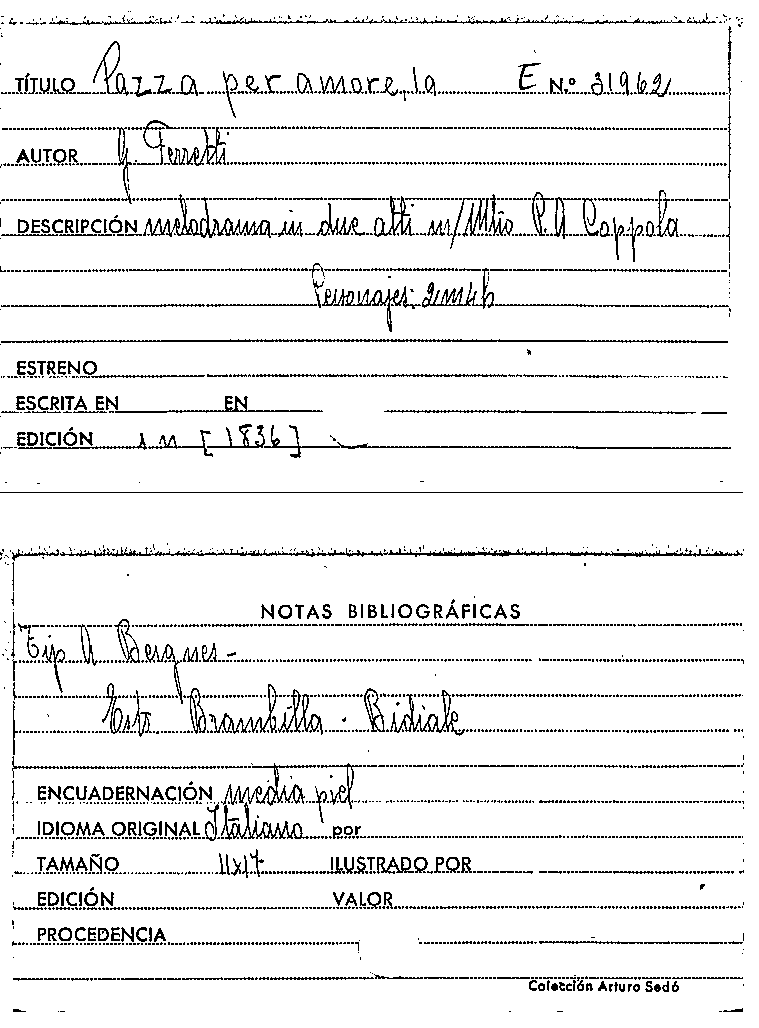 TÍTULO Pazza per amore, la E N.º 31962
AUTOR G. Ferretti
DESCRIPCIÓN melodrama in due atti m/ Mtro P. A Coppola
Personajes: 2m4h
ESTRENO
ESCRITA EN EN
EDICIÓN [1836]
NOTAS BIBLIOGRÁFICAS
Tip A Bergnes -
Estr. Brambilla - Bidiale
ENCUADERNACIÓN media piel
IDIOMA ORIGINAL Italiano por
TAMAÑO 11x17 ILUSTRADO POR
EDICIÓN VALOR
PROCEDENCIA
Colección Arturo Sedó